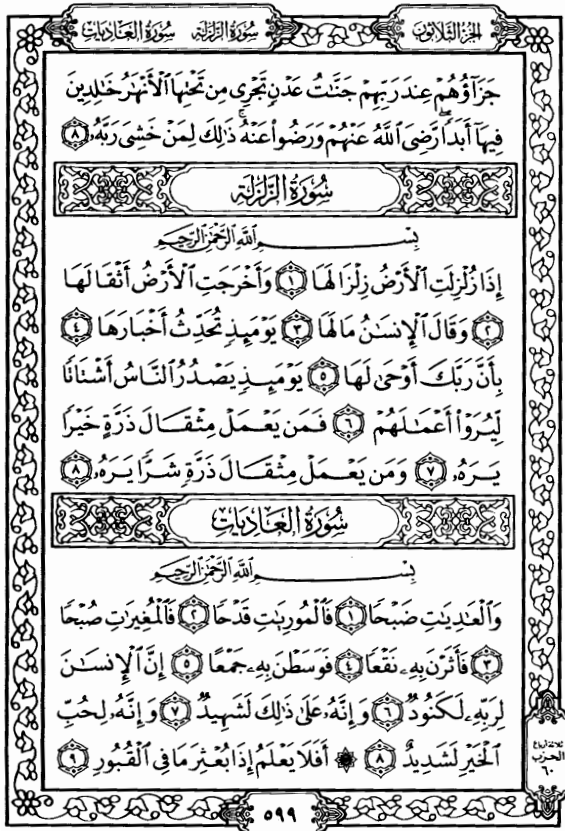 الجزء الثلاثون
سورة الزلزلة سورة العاديات
جَزَآؤُهُمْ عِندَ رَبِّهِمْ جَنَّـٰتُ عَدْنٍ تَجْرِى مِن تَحْتِهَا ٱلْأَنْهَـٰرُ خَـٰلِدِينَ
فِيهَآ أَبَدًاۖ رَّضِىَ ٱللَّهُ عَنْهُمْ وَرَضُوا۟ عَنْهُۚ ذَٰلِكَ لِمَنْ خَشِىَ رَبَّهُۥ ٨
سُورَةُ الزَّلْزَلَةِ
بِسْمِ ٱللَّهِ ٱلرَّحْمَـٰنِ ٱلرَّحِيمِ
إِذَا زُلْزِلَتِ ٱلْأَرْضُ زِلْزَالَهَا ١ وَأَخْرَجَتِ ٱلْأَرْضُ أَثْقَالَهَا
٢ وَقَالَ ٱلْإِنسَـٰنُ مَا لَهَا ٣ يَوْمَئِذٍ تُحَدِّثُ أَخْبَارَهَا ٤
بِأَنَّ رَبَّكَ أَوْحَىٰ لَهَا ٥ يَوْمَئِذٍ يَصْدُرُ ٱلنَّاسُ أَشْتَاتًا
لِّيُرَوْا۟ أَعْمَـٰلَهُمْ ٦ فَمَن يَعْمَلْ مِثْقَالَ ذَرَّةٍ خَيْرًا
يَرَهُۥ ٧ وَمَن يَعْمَلْ مِثْقَالَ ذَرَّةٍ شَرًّا يَرَهُۥ ٨
سُورَةُ العَادِيَاتِ
بِسْمِ ٱللَّهِ ٱلرَّحْمَـٰنِ ٱلرَّحِيمِ
وَٱلْعَـٰدِيَـٰتِ ضَبْحًا ١ فَٱلْمُورِيَـٰتِ قَدْحًا ٢ فَٱلْمُغِيرَٰتِ صُبْحًا
٣ فَأَثَرْنَ بِهِۦ نَقْعًا ٤ فَوَسَطْنَ بِهِۦ جَمْعًا ٥ إِنَّ ٱلْإِنسَـٰنَ
لِرَبِّهِۦ لَكَنُودٌ ٦ وَإِنَّهُۥ عَلَىٰ ذَٰلِكَ لَشَهِيدٌ ٧ وَإِنَّهُۥ لِحُبِّ
ٱلْخَيْرِ لَشَدِيدٌ ٨ ۞ أَفَلَا يَعْلَمُ إِذَا بُعْثِرَ مَا فِى ٱلْقُبُورِ ٩
ثلاثة أرباع
الحزب
٦٠
٥٩٩